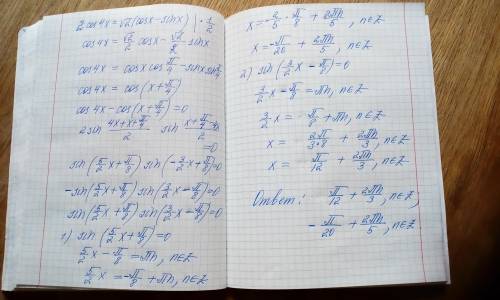 2cos4x = √2(cosx - sinx) | · 1/2
cos4x = √2/2 cosx - √2/2 sinx
cos4x = cosx cos π/4 - sinx sin π/4
cos4x = cos(x + π/4)
cos4x - cos(x + π/4) = 0
2sin (4x + x + π/4)/2 sin (x + π/4 - 4x)/2 = 0
sin(5/2 x + π/8) sin(-3/2 x + π/8) = 0
-sin(5/2 x + π/8) sin(3/2 x - π/8) = 0
sin(5/2 x + π/8) sin(3/2 x - π/8) = 0
1) sin(5/2 x + π/8) = 0
5/2 x - π/8 = πn, n∈Z
5/2 x = -π/8 + πn, n∈Z
x = -2/5 · π/8 + 2πn/5, n∈Z
x = -π/20 + 2πn/5, n∈Z
2) sin(3/2 x - π/8) = 0
3/2 x - π/8 = πn, n∈Z
3/2 x = π/8 + πn, n∈Z
x = 2π/3·8 + 2πn/3, n∈Z
x = π/12 + 2πn/3, n∈Z
Ответ: π/12 + 2πn/3, n∈Z;
-π/20 + 2πn/5, n∈Z.